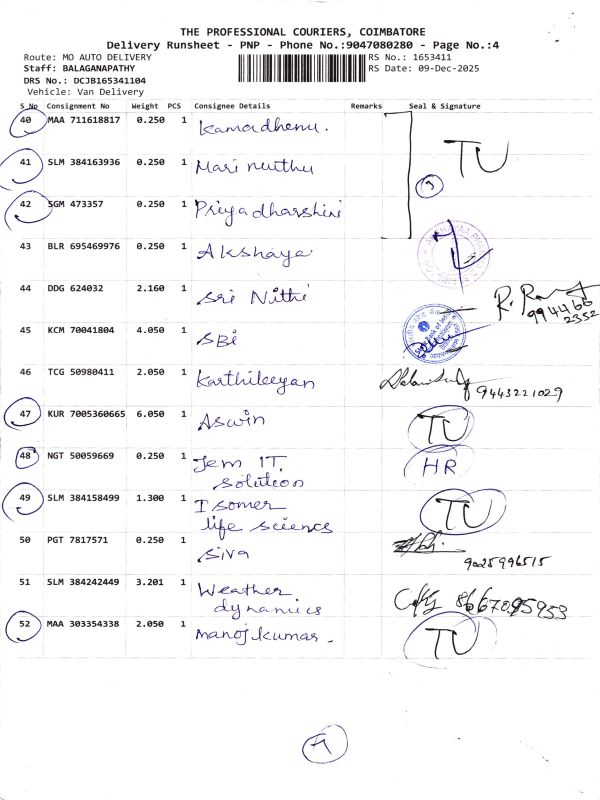 THE PROFESSIONAL COURIERS, COIMBATORE
Delivery Runsheet - PNP - Phone No.:9047080280 - Page No.:4
Route: MO AUTO DELIVERY RS No.: 1653411
Staff: BALAGANAPATHY RS Date: 09-Dec-2025
DRS No.: DCJB165341104
Vehicle: Van Delivery
S No Consignment No Weight PCS Consignee Details Remarks Seal & Signature
40 MAA 711618817 0.250 1 Kamadhenu. TU
41 SLM 384163936 0.250 1 Mari muthu
42 SGM 473357 0.250 1 Priyadharshini
43 BLR 695469976 0.250 1 Akshaya
44 DDG 624032 2.160 1 Sri Nithi 994466
2352
45 KCM 70041804 4.050 1 SBI
46 TCG 50980411 2.050 1 Karthikeyan 9443221029
47 KUR 7005360665 6.050 1 Aswin TU
48 NGT 50059669 0.250 1 Jem IT HR
solution
49 SLM 384158499 1.300 1 Isomer TU
life sciencs
50 PGT 7817571 0.250 1 Siva
9025996515
51 SLM 384242449 3.201 1 Weather 8667095953
dynamics
52 MAA 303354338 2.050 1 manojkumar. TU